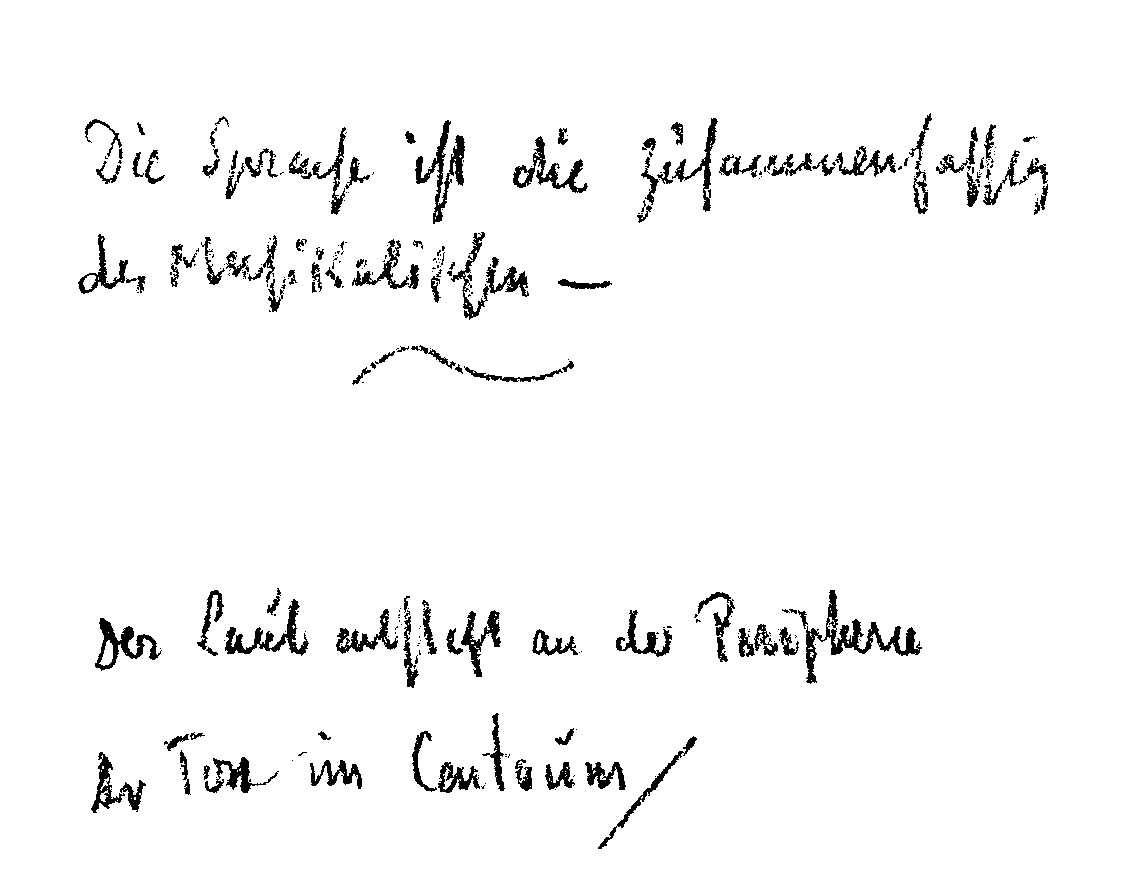 Die Sprache ist die Zusammenfassung
des Musikalischen —
Der Laut entsteht an der Peripherie
der Ton im Centrum /